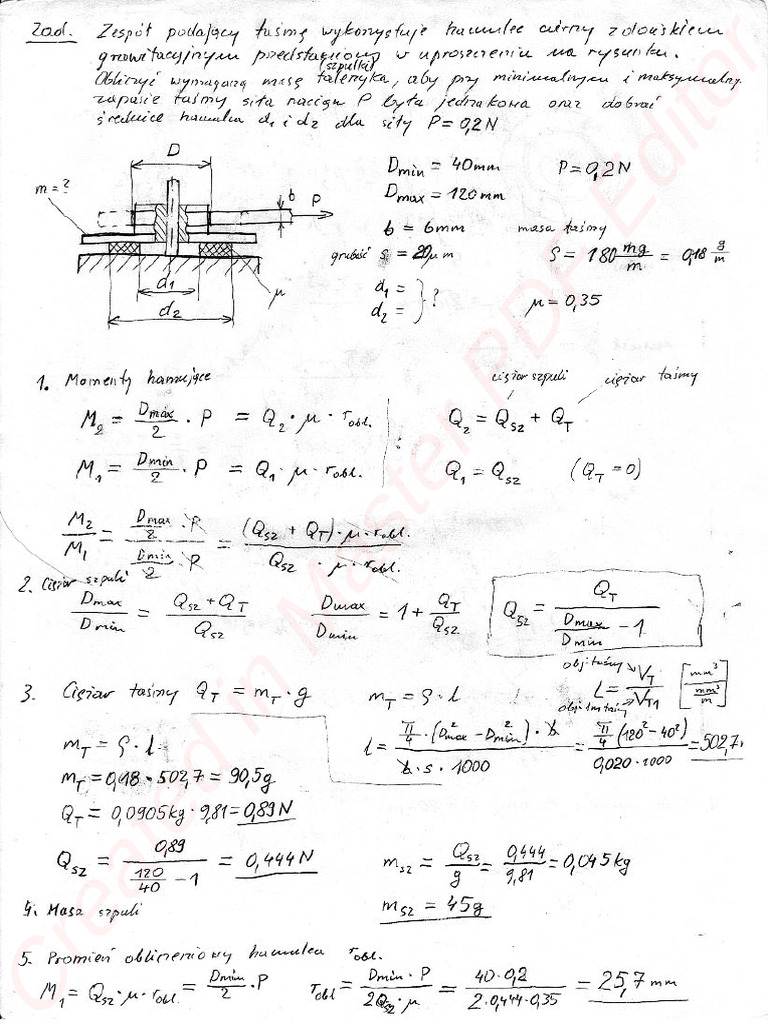 Zad. Zespół podający taśmę wykorzystuje hamulec cierny z dociskiem
grawitacyjnym przedstawiony w uproszczeniu na rysunku.
(szpulki)
Obliczyć wymaganą masę talerzyka, aby przy minimalnym i maksymalnym
zapasie taśmy siła naciągu P była jednakowa oraz dobrać
średnice hamulca d1 i d2 dla siły P = 0,2 N
D
m = ?
b
P
d1
d2
μ
Dmin = 40 mm P = 0,2 N
Dmax = 120 mm
b = 6 mm masa taśmy
grubość s = 20 μm ρ = 180 mg/m = 0,18 g/m
d1 =
d2 = } ?
μ = 0,35
1. Momenty hamujące
ciężar szpuli ciężar taśmy
M2 = Dmax/2 · P = Q2 · μ · robl. Q2 = Qsz + QT
M1 = Dmin/2 · P = Q1 · μ · robl. Q1 = Qsz (QT = 0)
M2/M1 = (Dmax/2 · P)/(Dmin/2 · P) = ((Qsz + QT) · μ · robl.)/(Qsz · μ · robl.)
2. Ciężar szpuli
Dmax/Dmin = (Qsz + QT)/Qsz Dmax/Dmin = 1 + QT/Qsz Qsz = QT/(Dmax/Dmin - 1)
3. Ciężar taśmy QT = mT · g mT = ρ · l
obj. taśmy
L = VT/VT1 [mm³/(mm³/m)]
obj 1m taśmy
mT = ρ · l
l = (π/4 · (D²max - D²min) · b)/(b · s · 1000) = (π/4 (120² - 40²))/(0,020 · 1000) = 502,7
mT = 0,18 · 502,7 = 90,5 g
QT = 0,0905 kg · 9,81 = 0,89 N
Qsz = 0,89/(120/40 - 1) = 0,444 N
msz = Qsz/g = 0,444/9,81 = 0,045 kg
4. Masa szpuli
msz = 45 g
5. Promień obliczeniowy hamulca robl.
M1 = Qsz · μ · robl. = Dmin/2 · P robl = (Dmin · P)/(2Qsz · μ) = (40 · 0,2)/(2 · 0,444 · 0,35) = 25,7 mm
Created in Master PDF Editor